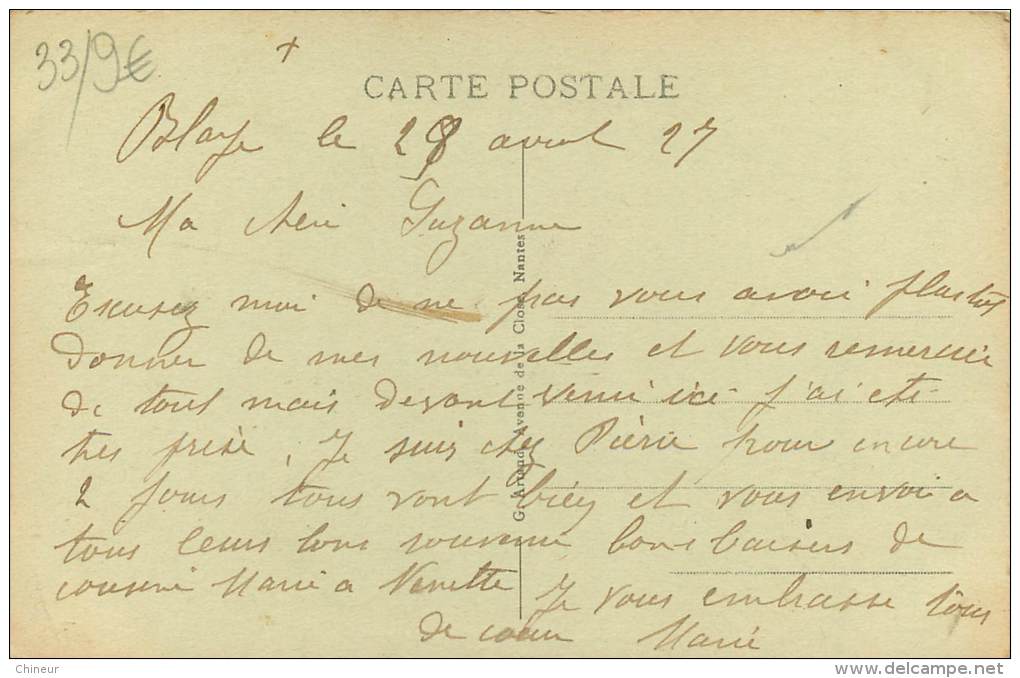 33/9€
CARTE POSTALE
Blaye le 28 avril 27
Ma cheri Suzanne
Excusez moi de ne pas vous avoir plustos
donner de mes nouvelles et vous remercie
de tout mais devant venir ici j'ai ete
tres prise. Je suis chez Pierre pour encore
2 jours tous vont bien et vous envoi a
tous leurs bons souvenir bons baisers de
cousine Marie a Nenette Je vous embrasse tous
de coeur Marie
G. Artaud, Avenue de la Close, Nantes
Chineur
delcampe.net